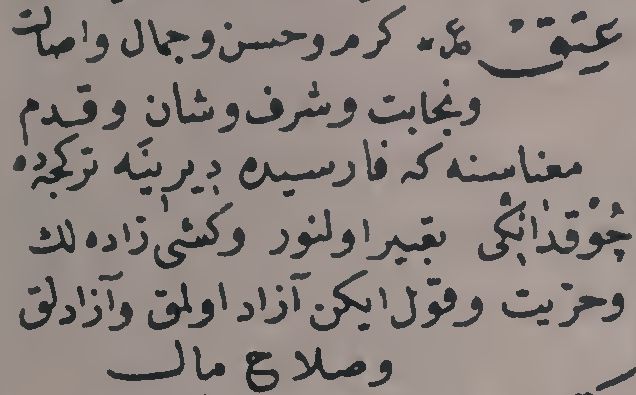 عتق ع‍ كرم و حسن و جمال و اصالت
و نجابت و شرف و شان و قدم
معناسنه كه فارسیده دیرینه تركجه‌ده
چوقدانكی تعبیر اولنور و كشی زاده لك
و حریت و قول ایكن آزاد اولمق و آزادلق
و صلاح مال